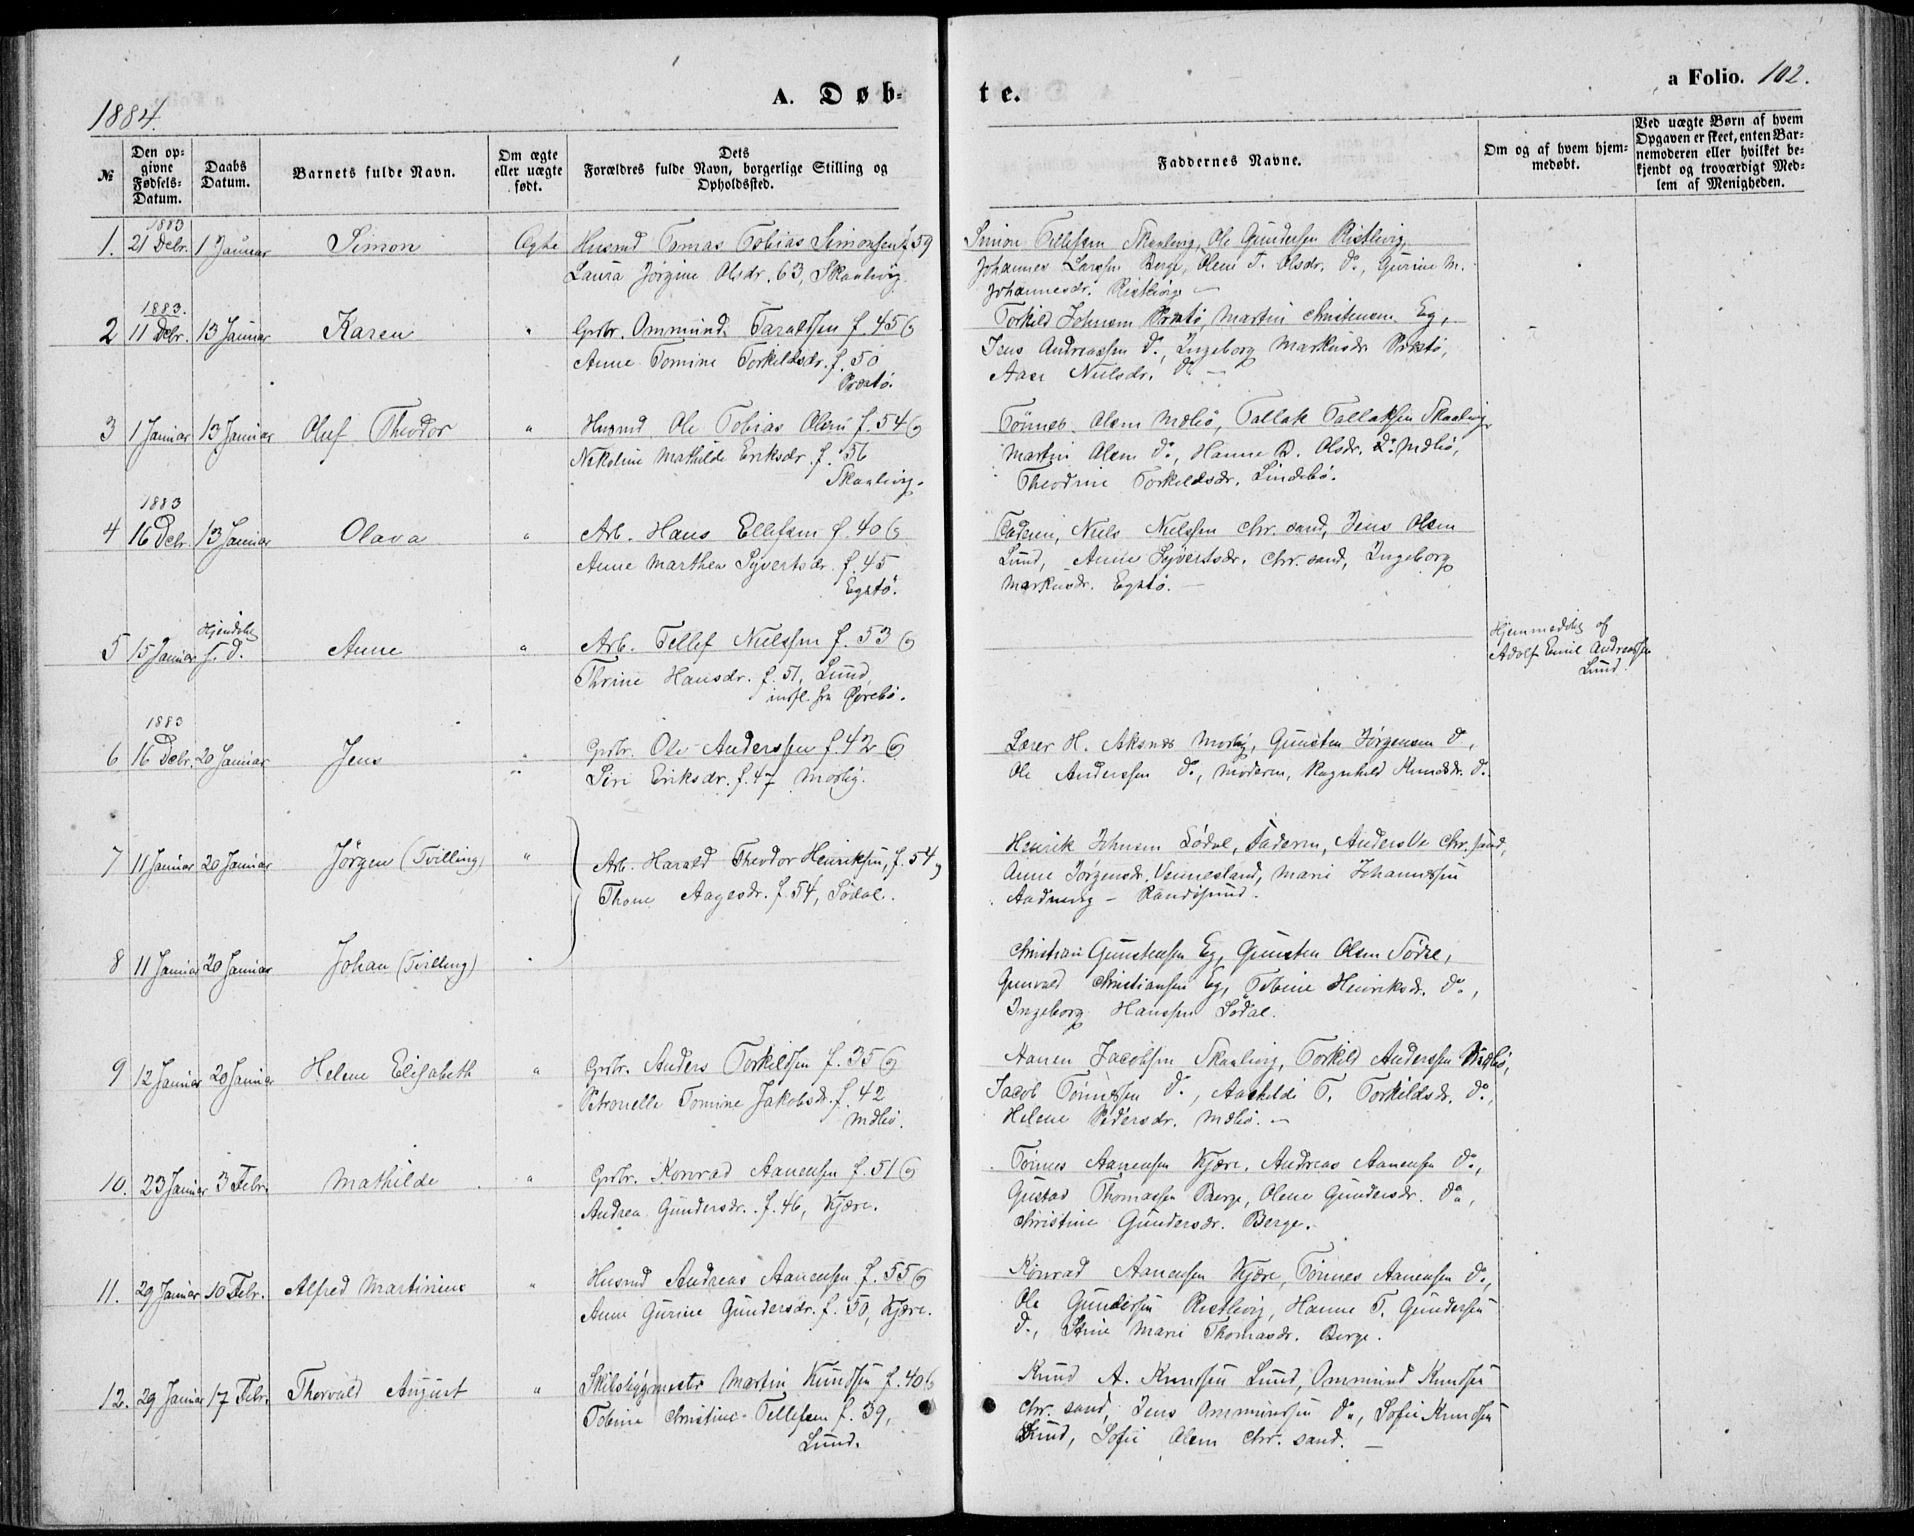 1884.
A. Døb-
te.
a Folio. 102.
№
Den op-
givne
Fødsels-
Datum.
Daabs
Datum.
Barnets fulde Navn.
Om ægte
eller uægte
født.
Dets
Forældres fulde Navn, borgerlige Stilling og
Opholdssted.
Faddernes Navne.
Om og af hvem hjem-
medøbt.
Ved uægte Børn af hvem
Opgaven er skeet, enten Bar-
nemoderen eller hvilket be-
kjendt og troværdigt Med-
lem af Menigheden.
1883
1. 21 Decbr. 1 Januar Simon Ægte Husmd Tomas Tobias Simonsen f. 59
Laura Jørgine Olsdr. 63, Skaalevig.
Simon Tellefsen Skaalevig, Ole Gundersen Ristlevig,
Johannes Larssen Berge, Olene T. Olsdr. do, Gurine M.
Johannesdr. Ristlevig —
1883.
2 11 Decbr. 13 Januar Karen " Grbr. Ommund Taraldsen f. 45 og
Anne Tomine Torkildsdr. f. 50
Præstø.
Torkild Johnsen Præstø, Martin Christensen Eg,
Jens Andreassen do, Ingeborg Markusdr Præstø,
Aase Nielsdr. do —
3 1 Januar 13 Januar Oluf Theodor " Husmd Ole Tobias Olsen f. 54 og
Nikoline Mathilde Eriksdr. f. 56
Skaalevig.
Tönnes Olsen Mdbö, Tallak Tallaksen Skaalevig
Martin Olsen do, Hanne B. Olsdr. Mdbö,
Theodine Torkildsdr. Lindebö.
1883
4 16 Decbr. 13 Januar Olava " Arb. Hans Ellefsen f. 40 og
Anne Marthea Syvertsdr. f. 45
Egstö.
Faderen, Niels Nielssen Chr.sand, Jens Olsen
Lund, Anne Syvertsdr. Chr.sand, Ingeborg
Markusdr. Egstö. —
5 15 Januar Hjemdöbt s. D. Anne " Arb. Tellef Nielssen f. 53 og
Thrine Hansdr. f. 51, Lund,
indfl. fra Øvrebö.
Hjemmedöbt af
Adolf Emil Andreassen
Lund.
1883
6 16 Decbr. 20 Januar Jens " Grbr. Ole Anderssen f. 42 og
Siri Eriksdr. f. 47 Moslig.
Lærer H. Aksnes Moslig, Gunsten Jørgensen do,
Ole Anderssen do, Moderen, Ragnhild Knudsdr. do.
7 11 Januar 20 Januar Jörgen (Tvilling) " Arb. Harald Theodor Henriksen, f. 54 og
Thone Aagesdr. f. 54, Södal.
Henrik Johnsen Södal, Faderen, Anders Ve Chr.sand,
Anne Jörgensdr. Vennesland, Marie Johannessen
Aadnevig – Randösund.
8 11 Januar 20 Januar Johan (Tvilling)
Christian Gunstensen Eg, Gunsten Olsen Södal,
Gunvald Christiansen Eg, Tobine Henriksdr. do,
Ingeborg Hanssen Södal.
9 12 Januar 20 Januar Helene Elisabeth " Grbr. Anders Torkildsen f. 35 og
Petronelle Tomine Jakobsdr. f. 42
Mdbö.
Aanen Jacobsen Skaalevig, Torkild Anderssen Mdbö,
Jacob Tönnessen do, Aashilde T. Torkildsdr. do,
Helene Pedersdr. Mdbö. —
10. 23 Januar 3 Febr. Mathilde " Grbr. Konrad Aanensen f. 51 og
Andrea Gundersdr. f. 46, Kjære.
Tönnes Aanensen Kjære, Andreas Aanensen do,
Gustav Thomassen Berge, Olene Gundersdr. do,
Christine Gundersdr. Berge.
11. 29 Januar 10 Febr. Alfred Martinius " Husmd Andreas Aanensen f. 55 og
Anne Gurine Gundersdr. f. 50, Kjære.
Konrad Aanensen Kjære, Tönnes Aanensen do,
Ole Gundersen Ristlevig, Hanne T. Gundersen
do, Stine Marie Thomasdr. Berge.
12. 29 Januar 17 Febr. Thorvald August " Skibsbygmester Martin Knudsen f. 40 og
Tobine Christine Tellefsen f. 39,
Lund.
Knud A. Knudsen Lund, Ommund Knudsen
Chr.sand, Jens Ommundsen do, Sofie Knudsen
Lund, Sofie Olsen Chr.sand. —